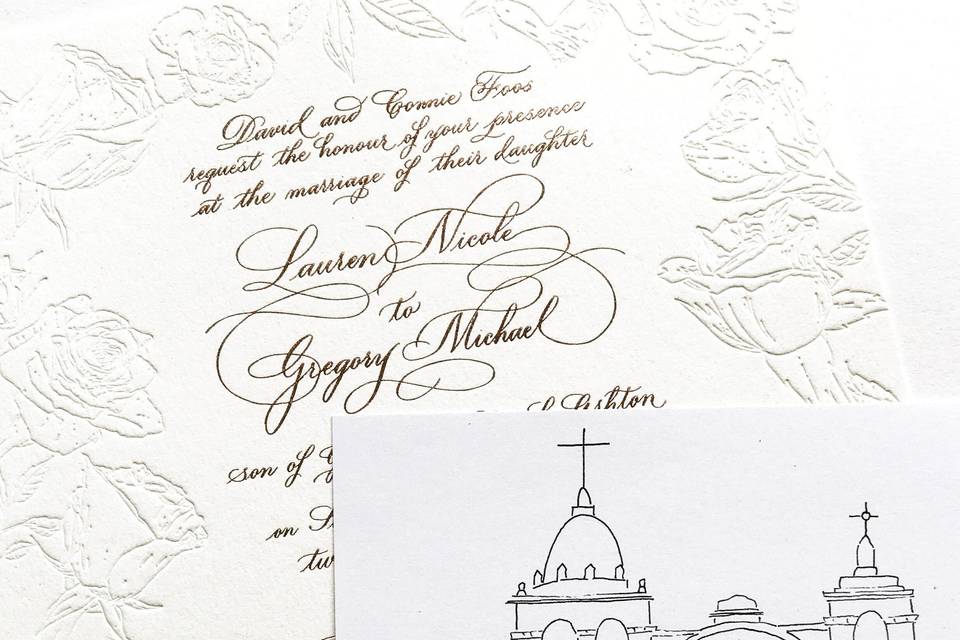 David and Connie Foos
request the honour of your presence
at the marriage of their daughter
Lauren Nicole
to
Gregory Michael
son of Ashton
on